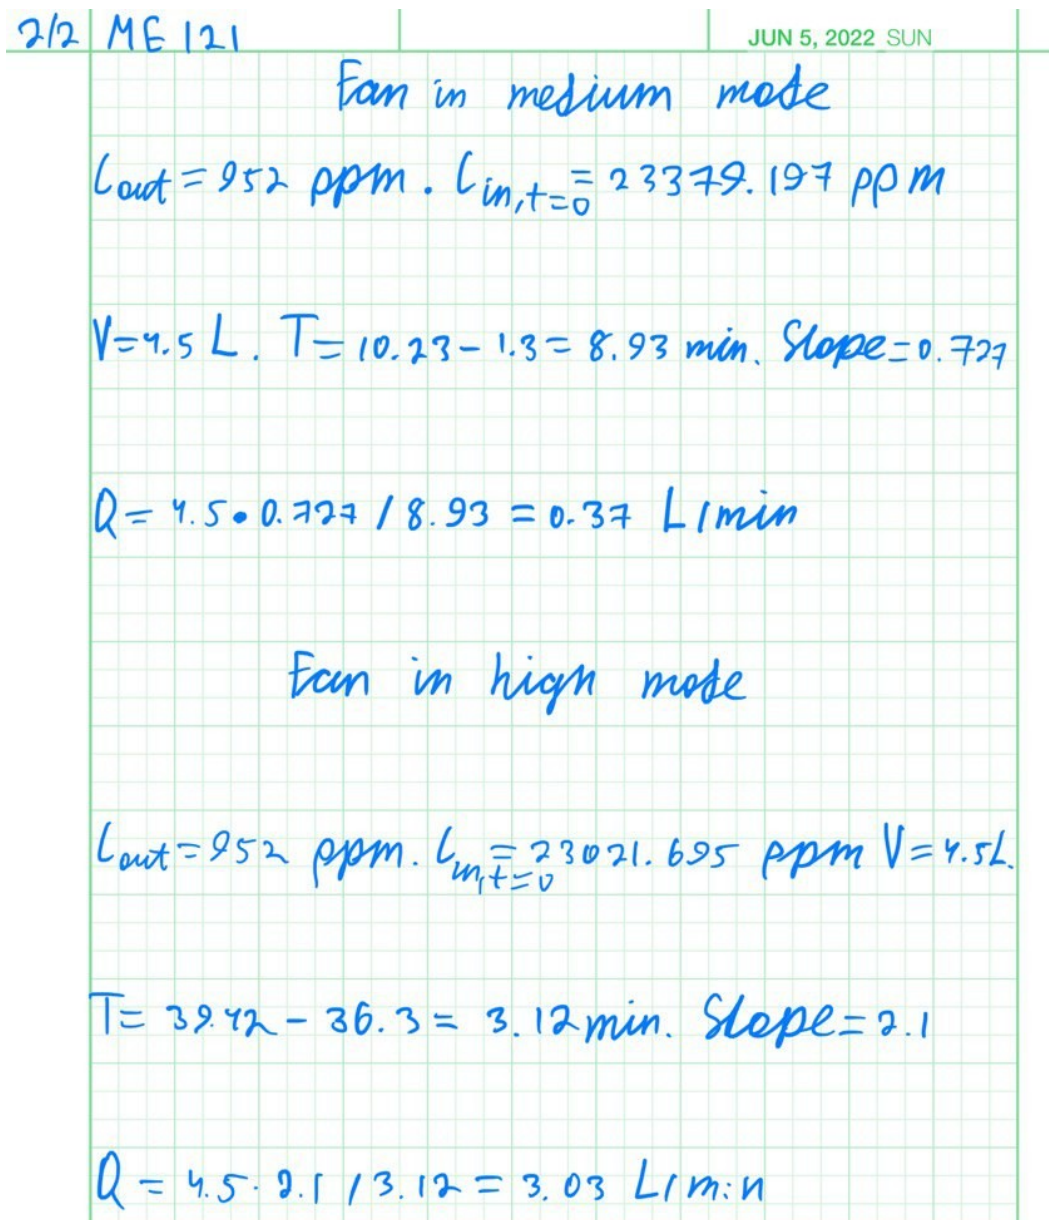 2/2 ME 121 JUN 5, 2022 SUN
Fan in medium mode
Cout = 952 ppm. Cin,t=0 = 23379.197 ppm
V=4.5 L. T= 10.23 - 1.3 = 8.93 min. Slope=0.727
Q = 4.5 • 0.727 / 8.93 = 0.37 L/min
Fan in high mode
Cout = 952 ppm. Cin,t=0 = 23021.695 ppm V= 4.5L.
T= 39.42 - 36.3 = 3.12 min. Slope = 2.1
Q = 4.5 · 2.1 / 3.12 = 3.03 L/min